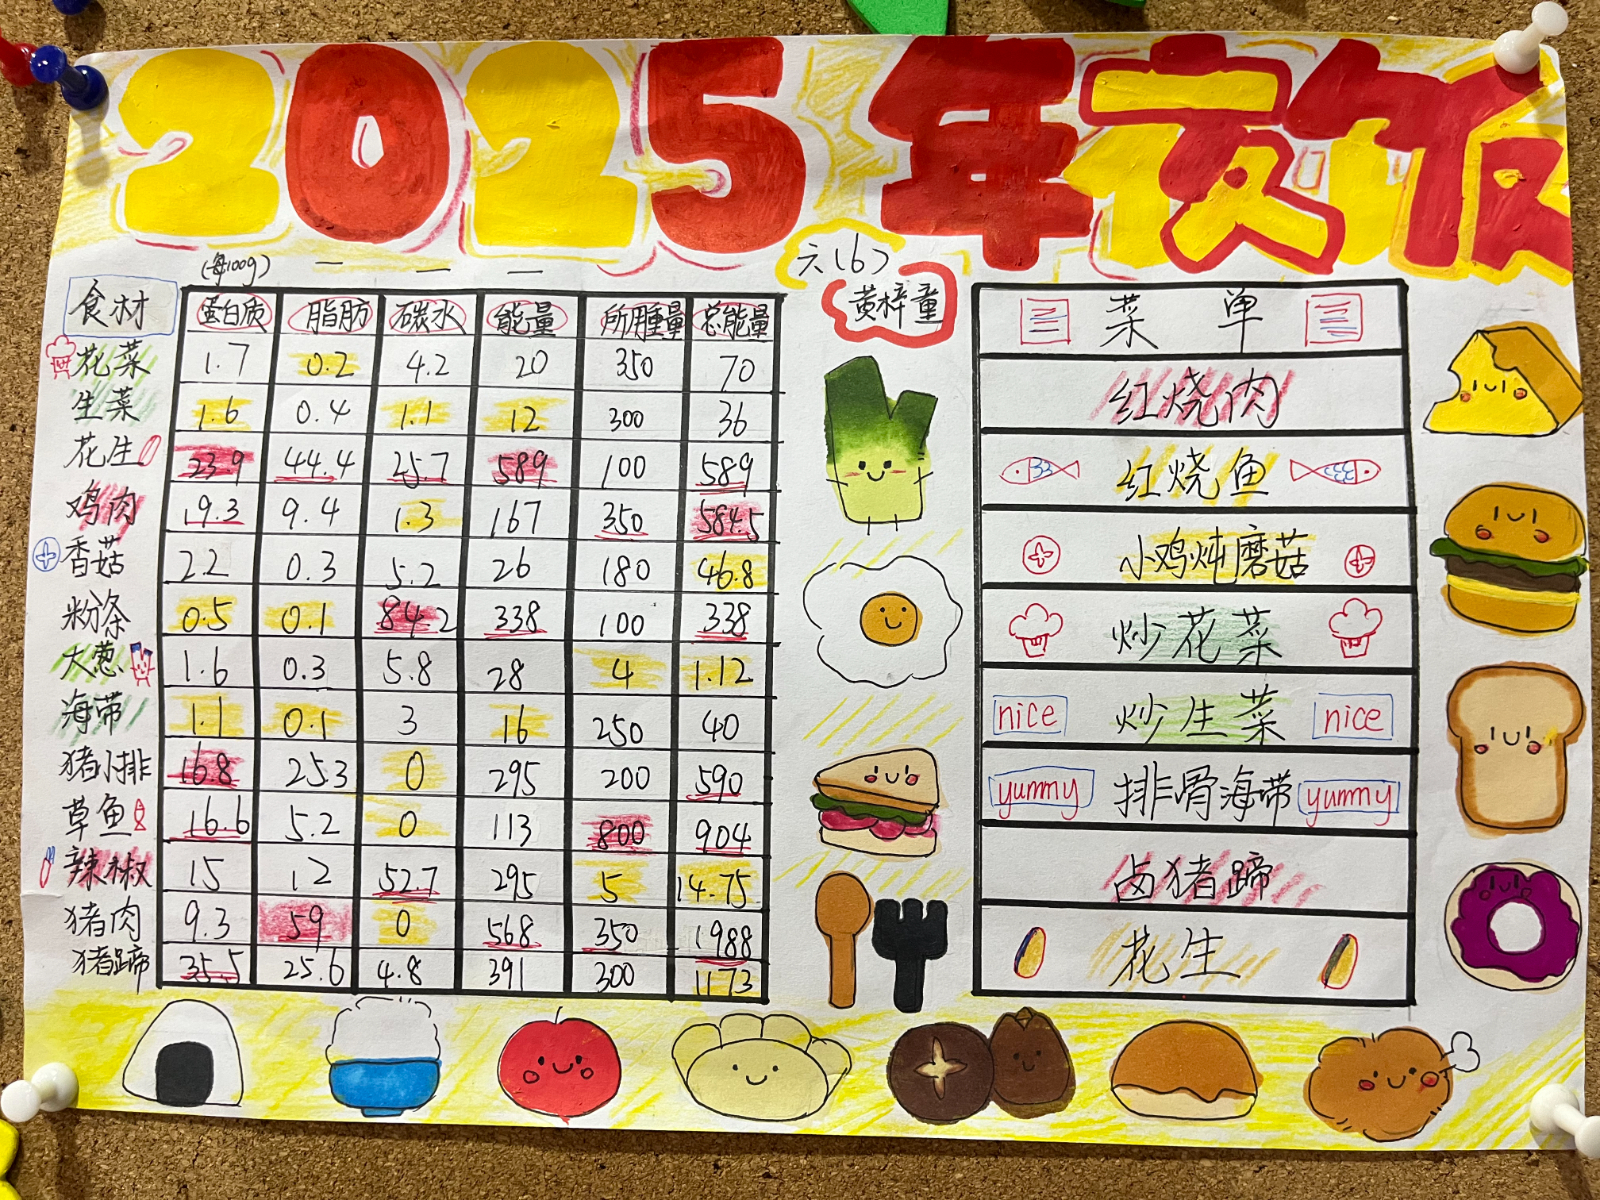 2025年夜饭
(每100g)
六(6)
黄梓童
食材 蛋白质 脂肪 碳水 能量 所用重量 总能量
花菜 1.7 0.2 4.2 20 350 70
生菜 1.6 0.4 1.1 12 300 36
花生 23.9 44.4 25.7 589 100 589
鸡肉 19.3 9.4 1.3 167 350 584.5
香菇 2.2 0.3 5.2 26 180 46.8
粉条 0.5 0.1 84.2 338 100 338
大葱 1.6 0.3 5.8 28 4 1.12
海带 1.1 0.1 3 16 250 40
猪小排 16.8 25.3 0 295 200 590
草鱼 16.6 5.2 0 113 800 904
辣椒 15 12 52.7 295 5 14.75
猪肉 9.3 59 0 568 350 1988
猪蹄 35.5 25.6 4.8 391 300 1173
菜单
红烧肉
红烧鱼
小鸡炖磨菇
炒花菜
nice 炒生菜 nice
yummy 排骨海带 yummy
卤猪蹄
花生